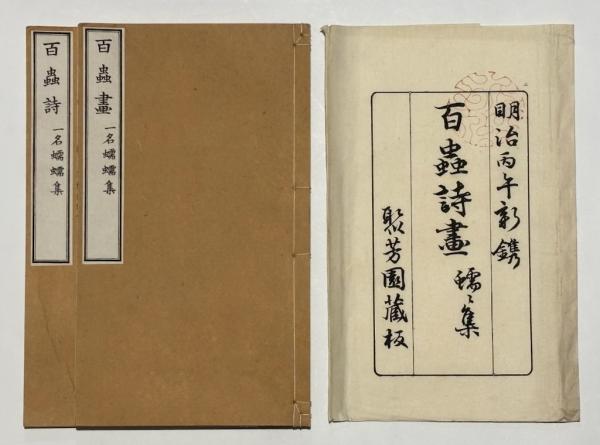 明治丙午新鐫
百蟲詩畫 蠕々集
聚芳園藏板
百蟲畫 一名蠕蠕集
百蟲詩 一名蠕蠕集